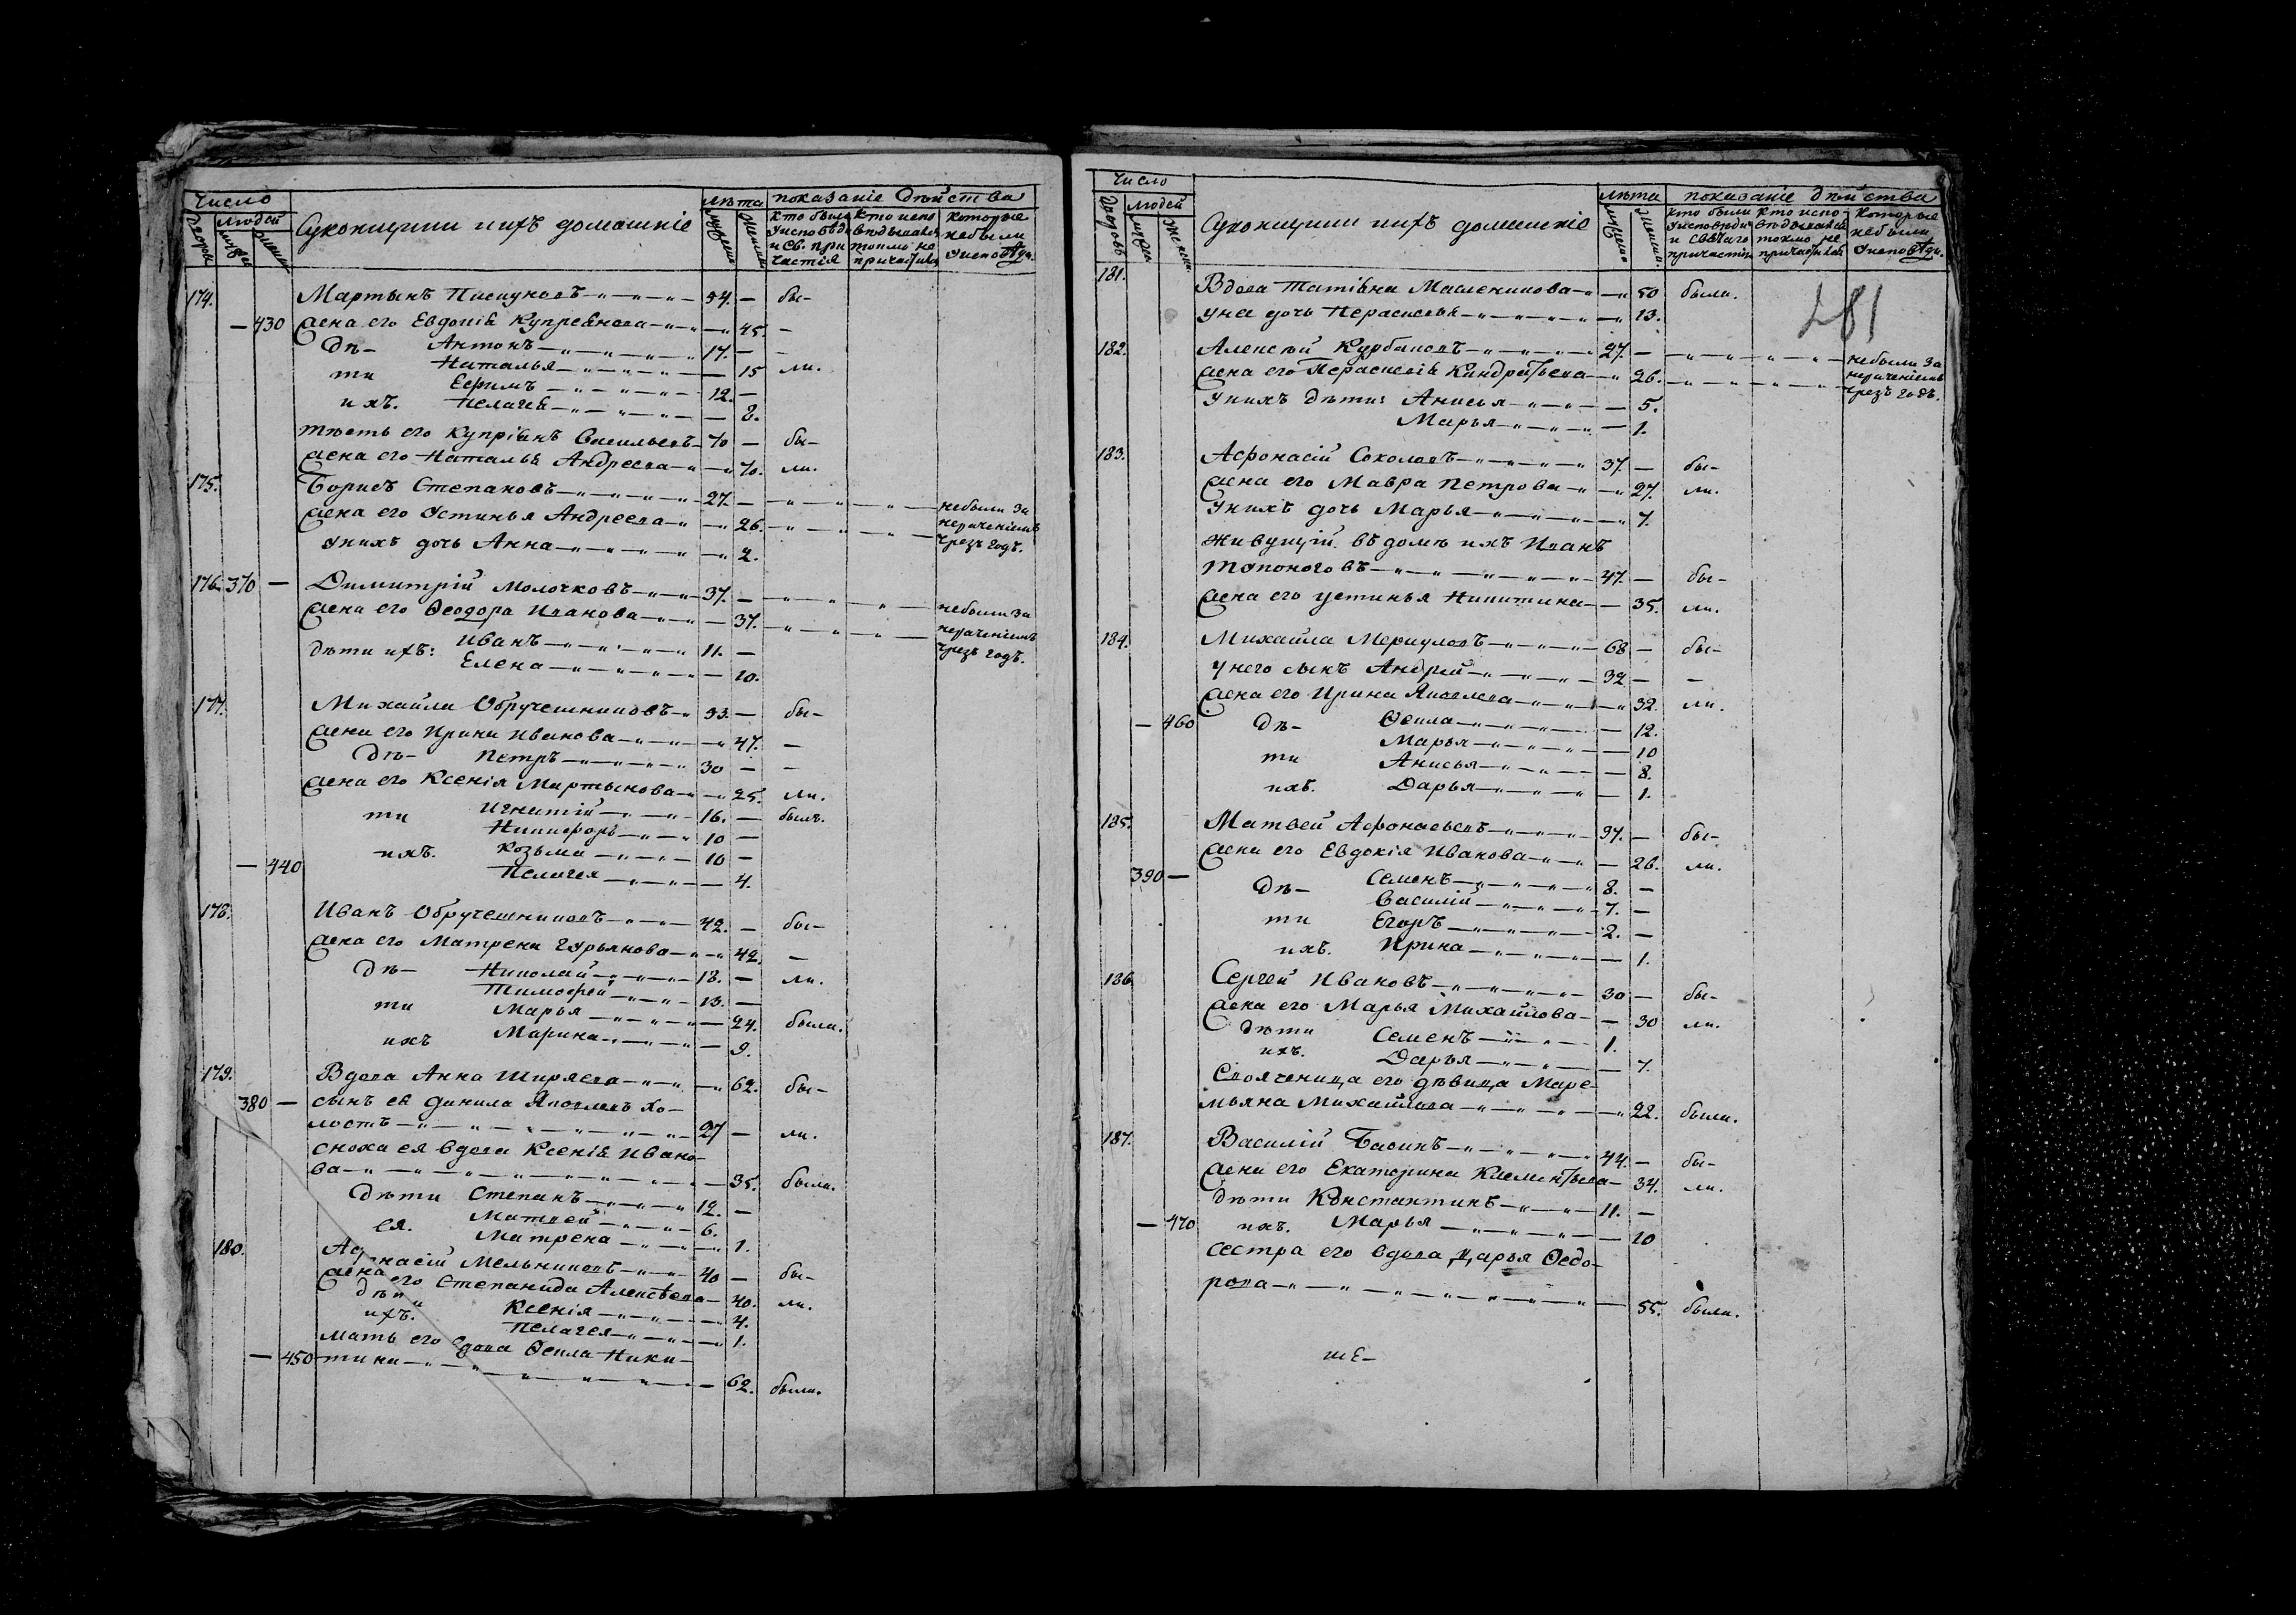 Число
людей
лѣта
показаніе дѣйства
дворовъ
мужеска
женска
Суконщики и ихъ домашніе
мужеска
женска
кто были
у исповѣди
и св. при
частія
кто испо
вѣдывался
токмо не
причастился
которые
небыли
у исповѣди.
174. Мартынъ 54. — бы-
— 430 жена его Евдокія Купреянова — 45. —
дѣ- Антонъ 17. — -
Наталья — 15 ли.
ти Ефимъ 12. —
ихъ. Пелагея — 8.
тесть его Купріянъ Васильевъ 70 — бы-
жена его Наталья Андреева — 70. ли.
175. Борисъ Степановъ 27. — небыли за
жена его Устинья Андреева — 26. нераченіемъ
чрезъ годъ.
у нихъ дочь Анна — 2.
176. 370 — Димитрій Молочковъ 37. —
жена его Ѳеодора Иванова — 37. небыли за
нераченіемъ
дѣти ихъ: Иванъ 11. — чрезъ годъ.
Елена — 10.
177. Михайла Обручешниковъ 53. — бы-
жена его Ирина Иванова — 47. —
дѣ- Петръ 30 — -
жена его Ксенія Мартынова — 25. ли.
ти Игнатій 16. — былъ.
Никифоръ 10 —
ихъ. Козьма 10 —
— 440 Пелагея — 4.
178. Иванъ Обручешниковъ 42. — бы-
жена его Матрена Гурьянова — 42. —
дѣ- Николай 18. — ли.
Тимофей 13. —
ти Марья — 24. была.
ихъ Марина — 9.
179. Вдова Анна Ширяева — 62. бы-
380 — сынъ ея Данила Яковлевъ хо-
лостъ 27 — ли.
сноха ея вдова Ксенія Ивано-
ва — 35. была.
дѣти Степанъ 12. —
Матвей 6.
ея. Матрена — 1.
180. Афонасій Мельниковъ 40 — бы-
жена его Степанида Алексѣева — 40. ли.
дѣти Ксенія — 4.
ихъ. Пелагея — 1.
мать его вдова Ѳекла Ники-
— 450 тина — 62. была.
Число
людей
лѣта
показаніе дѣйства
дворовъ
мужеска
женска
Суконщики и ихъ домашніе
мужеска
женска
кто были
у исповѣди
и святаго
причастія
кто испо-
вѣдывался
токмо не
причастился
которые
небыли
у исповѣди.
181. Вдова Татіяна Масленикова — 50 была.
281
у нея дочь Перасковья — 13.
182. Алексѣй Курбаковъ 27. — небыли за
жена его Перасковія Кондратьева — 26. нераченіемъ
чрезъ годъ.
у нихъ дѣти: Анисья — 5.
Марья — 1.
183. Афонасій Соколовъ 37. — бы-
жена его Мавра Петрова — 27. ли.
у нихъ дочь Марья — 7.
живущій въ домѣ ихъ Иванъ
Топоноговъ 47. — бы-
жена его Устинья Никитина — 35. ли.
184. Михайла Меркуловъ 68 — бы-
у него сынъ Андрей 32 — -
жена его Ирина Яковлева — 32. ли.
— 460 дѣ- Ѳекла — 12.
Марья — 10
ти Анисья — 8.
ихъ. Дарья — 1.
185. Матвей Афонасьевъ 37. — бы-
жена его Евдокія Иванова — 26. ли.
390 — дѣ- Семенъ 8. —
Василій 7. —
ти Егоръ 2. —
ихъ. Ирина — 1.
186. Сергей Ивановъ 30 — бы-
жена его Марья Михайлова — 30 ли.
дѣти Семенъ 1.
ихъ. Дарья — 7.
Своячиница его дѣвица Маре-
мьяна Михайлова — 22. была.
187. Василій Басинъ 44. — бы-
жена его Екатерина Клементьева — 34. ли.
дѣти Константинъ 11. —
— 470 ихъ. Марья — 10
сестра его вдова Дарья Ѳедо-
рова — 55. была.